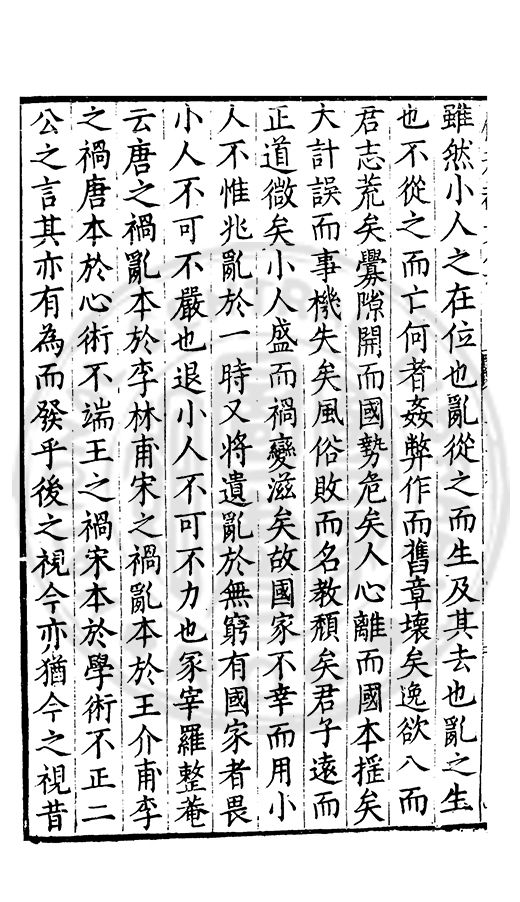 雖然小人之在位也亂從之而生及其去也亂之生
也不從之而亡何者姦弊作而舊章壞矣逸欲入而
君志荒矣釁隙開而國勢危矣人心離而國本揺矣
大計誤而事機失矣風俗敗而名教頽矣君子遠而
正道微矣小人盛而禍變滋矣故國家不幸而用小
人不惟兆亂於一時又將遺亂於無窮有國家者畏
小人不可不嚴也退小人不可不力也冢宰羅整菴
云唐之禍亂本於李林甫宋之禍亂本於王介甫李
之禍唐本於心術不端王之禍宋本於學術不正二
公之言其亦有為而發乎後之視今亦猶今之視昔